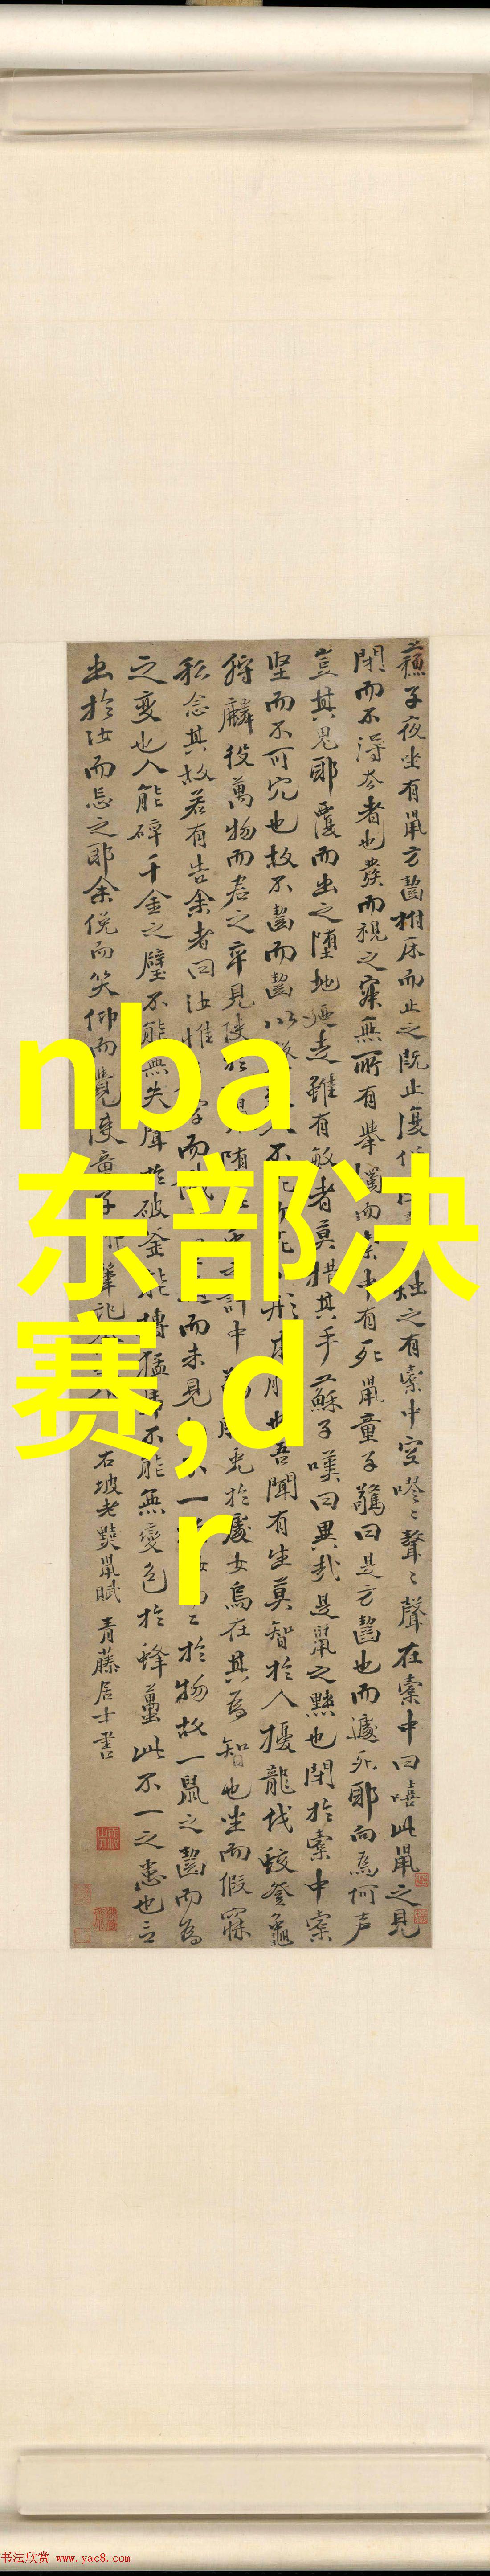 nba
东部决
赛,d
r
蘇子夜坐有鼠方齧拊床而止之既止復作燭之有橐中空嘐〻聲〻在橐中曰嘻此鼠之見
閉而不得去者也發而視之寂無所有舉燭而索中有死鼠童子驚曰是方齧也而遽死耶向為何声
豈其鬼耶覆而出之墮地迺走雖有敏者莫措其手蘇子嘆曰異哉是鼠之黠也閉於橐中橐
堅而不可穴也故不齧而齧以不死形求脫也吾聞有生莫智於人擾龍伐蛟登龜
狩麟役萬物而君之卒見使於墮之計中脫兔於處女烏在其為智也坐而假寐
私念其故若有告余者曰汝惟學而而未見一汝二於物故一鼠之齧而為
之變也人能碎千金之璧不能無失聲於破釜能搏猛虎不能無變色於蜂蠆此不一之患也言
出於汝而忘之耶余俛而笑仰而覺使童子筆記
右坡老黠鼠賦 青藤居士書
书法欣赏 www.yac8.com